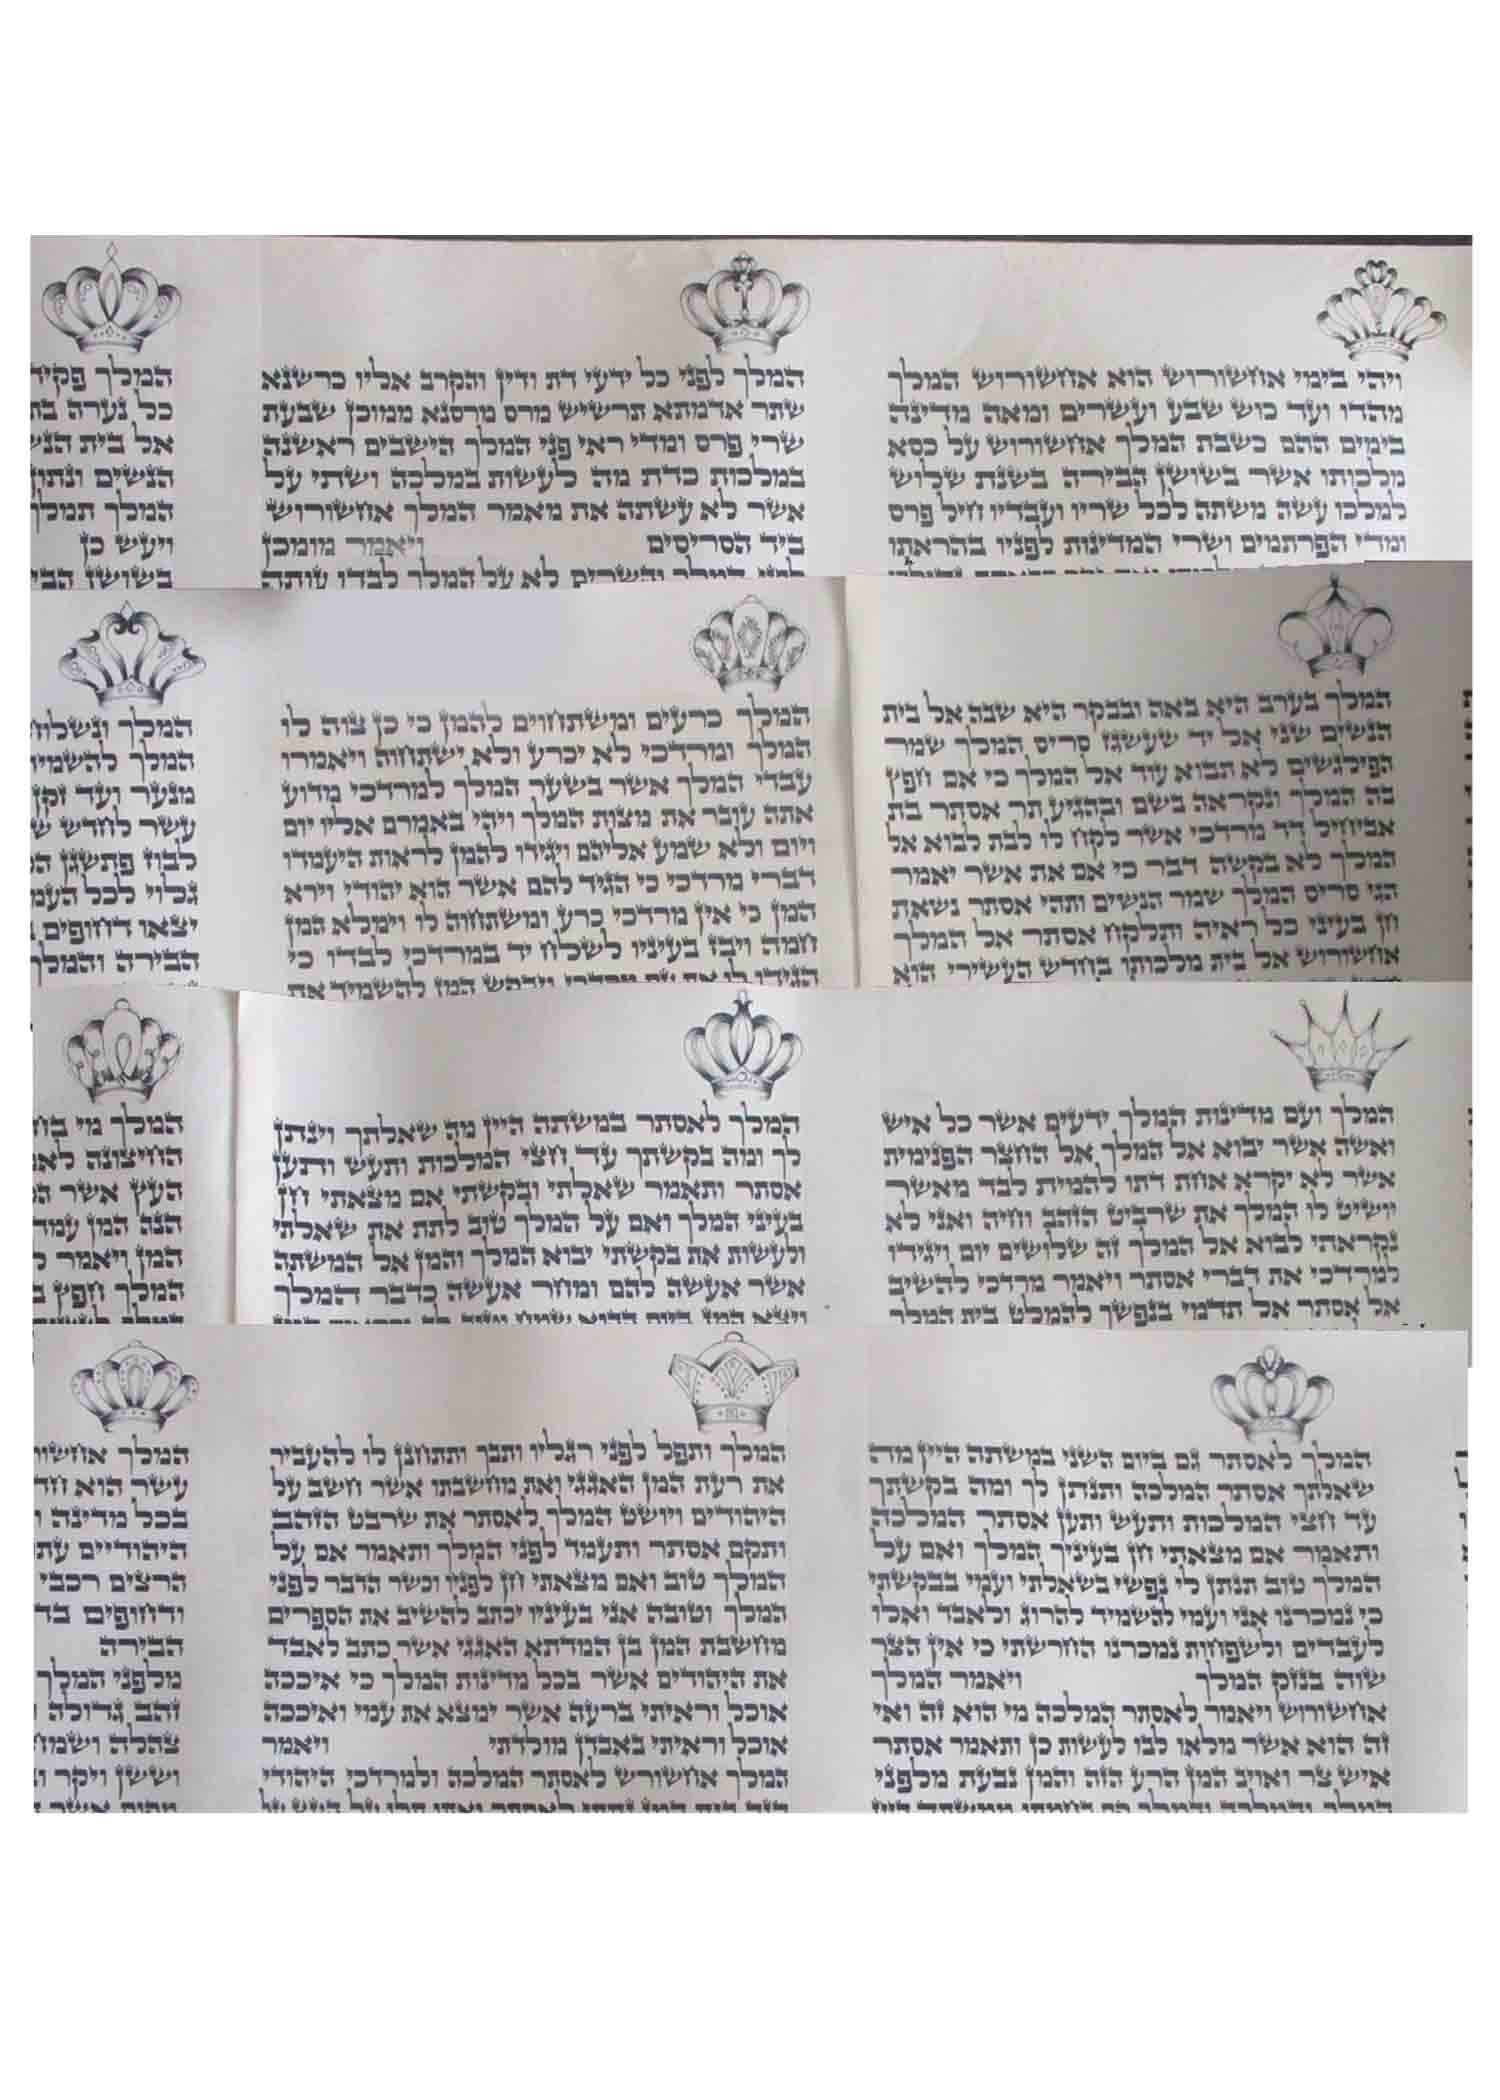 ויהי בימי אחשורוש הוא אחשורוש המלך
מהדו ועד כוש שבע ועשרים ומאה מדינה
בימים ההם כשבת המלך אחשורוש על כסא
מלכותו אשר בשושן הבירה בשנת שלוש
למלכו עשה משתה לכל שריו ועבדיו חיל פרס
ומדי הפרתמים ושרי המדינות לפניו בהראתו
המלך לפני כל ידעי דת ודין והקרב אליו כרשנא
שתר אדמתא תרשיש מרס מרסנא ממוכן שבעת
שרי פרס ומדי ראי פני המלך הישבים ראשנה
במלכות כדת מה לעשות במלכה ושתי על
אשר לא עשתה את מאמר המלך אחשורוש
ביד הסריסים ויאמר מומכן
לפני המלך והשרים לא על המלך לבדו עותה
המלך פקיד
כל נערה בת
אל בית הנש
הנשים ונתון
המלך תמלך
ויעש כן
בשושן הבי
המלך בערב היא באה ובבקר היא שבה אל בית
הנשים שני אל יד שעשגז סריס המלך שמר
הפילגשים לא תבוא עוד אל המלך כי אם חפץ
בה המלך ונקראה בשם ובהגיע תר אסתר בת
אביחיל דד מרדכי אשר לקח לו לבת לבוא אל
המלך לא בקשה דבר כי אם את אשר יאמר
הגי סריס המלך שמר הנשים ותהי אסתר נשאת
חן בעיני כל ראיה ותלקח אסתר אל המלך
אחשורוש אל בית מלכותו בחדש העשירי הוא
המלך כרעים ומשתחוים להמן כי כן צוה לו
המלך ומרדכי לא יכרע ולא ישתחוה ויאמרו
עבדי המלך אשר בשער המלך למרדכי מדוע
אתה עובר את מצות המלך ויהי באמרם אליו יום
ויום ולא שמע אליהם ויגידו להמן לראות היעמדו
דברי מרדכי כי הגיד להם אשר הוא יהודי וירא
המן כי אין מרדכי כרע ומשתחוה לו וימלא המן
חמה ויבז בעיניו לשלח יד במרדכי לבדו כי
הגידו לו את עם מרדכי ויבקש המן להשמיד את
המלך ונשלוח
המלך להשמיד
מנער ועד זקן
עשר לחדש ש
לבוז פתשגן הכ
גלוי לכל העמ
יצאו דחופים ב
הבירה והמלך
המלך ועם מדינות המלך ידעים אשר כל איש
ואשה אשר יבוא אל המלך אל החצר הפנימית
אשר לא יקרא אחת דתו להמית לבד מאשר
יושיט לו המלך את שרביט הזהב וחיה ואני לא
נקראתי לבוא אל המלך זה שלושים יום ויגידו
למרדכי את דברי אסתר ויאמר מרדכי להשיב
אל אסתר אל תדמי בנפשך להמלט בית המלך
המלך לאסתר במשתה היין מה שאלתך וינתן
לך ומה בקשתך עד חצי המלכות ותעש ותען
אסתר ותאמר שאלתי ובקשתי אם מצאתי חן
בעיני המלך ואם על המלך טוב לתת את שאלתי
ולעשות את בקשתי יבוא המלך והמן אל המשתה
אשר אעשה להם ומחר אעשה כדבר המלך
ויצא המן ביום ההוא שמח וטוב לב
המלך מי בח
החיצונה לאמ
העץ אשר הכ
הנה המן עמד
המן ויאמר ל
המלך חפץ ב
המלך לאסתר גם ביום השני במשתה היין מה
שאלתך אסתר המלכה ותנתן לך ומה בקשתך
עד חצי המלכות ותעש ותען אסתר המלכה
ותאמר אם מצאתי חן בעיניך המלך ואם על
המלך טוב תנתן לי נפשי בשאלתי ועמי בבקשתי
כי נמכרנו אני ועמי להשמיד להרוג ולאבד ואלו
לעבדים ולשפחות נמכרנו החרשתי כי אין הצר
שוה בנזק המלך ויאמר המלך
אחשורוש ויאמר לאסתר המלכה מי הוא זה ואי
זה הוא אשר מלאו לבו לעשות כן ותאמר אסתר
איש צר ואויב המן הרע הזה והמן נבעת מלפני
המלך והמלכה והמלך קם בחמתו ממשתה היין
המלך ותפל לפני רגליו ותבך ותתחנן לו להעביר
את רעת המן האגגי ואת מחשבתו אשר חשב על
היהודים ויושט המלך לאסתר את שרבט הזהב
ותקם אסתר ותעמד לפני המלך ותאמר אם על
המלך טוב ואם מצאתי חן לפניו וכשר הדבר לפני
המלך וטובה אני בעיניו יכתב להשיב את הספרים
מחשבת המן בן המדתא האגגי אשר כתב לאבד
את היהודים אשר בכל מדינות המלך כי איככה
אוכל וראיתי ברעה אשר ימצא את עמי ואיככה
אוכל וראיתי באבדן מולדתי ויאמר
המלך אחשורש לאסתר המלכה ולמרדכי היהודי
הנה בית המן נתתי לאסתר ואתו תלו על העץ על
המלך אחשור
עשר הוא חד
בכל מדינה ו
היהודיים עת
הרצים רכבי
ודחופים בד
הבירה
מלפני המלך
זהב גדולה ו
צהלה ושמח
וששן ויקר ו
מקום אשר